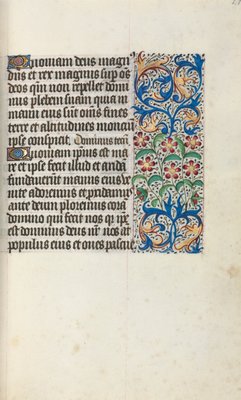 Quoniam deus magn
dñs et rex magnus sup oẽs
deos qm̃ non repellet domi
nus plebem suam quia in
manu eius sunt om̃s fines
terre et altitudines moncm̃
ipse conspicit. Dominus tecũ
Quoniam ip̃ius est ma
re et ipse fecit illud et arida
fundauerũt manus eius v
nite adoremus et procidam9
ante deum ploremus corã
domino qui fecit nos q̃ ip̃e
est dominus deus nr̃ nos aũt
populus eius et oues pascue